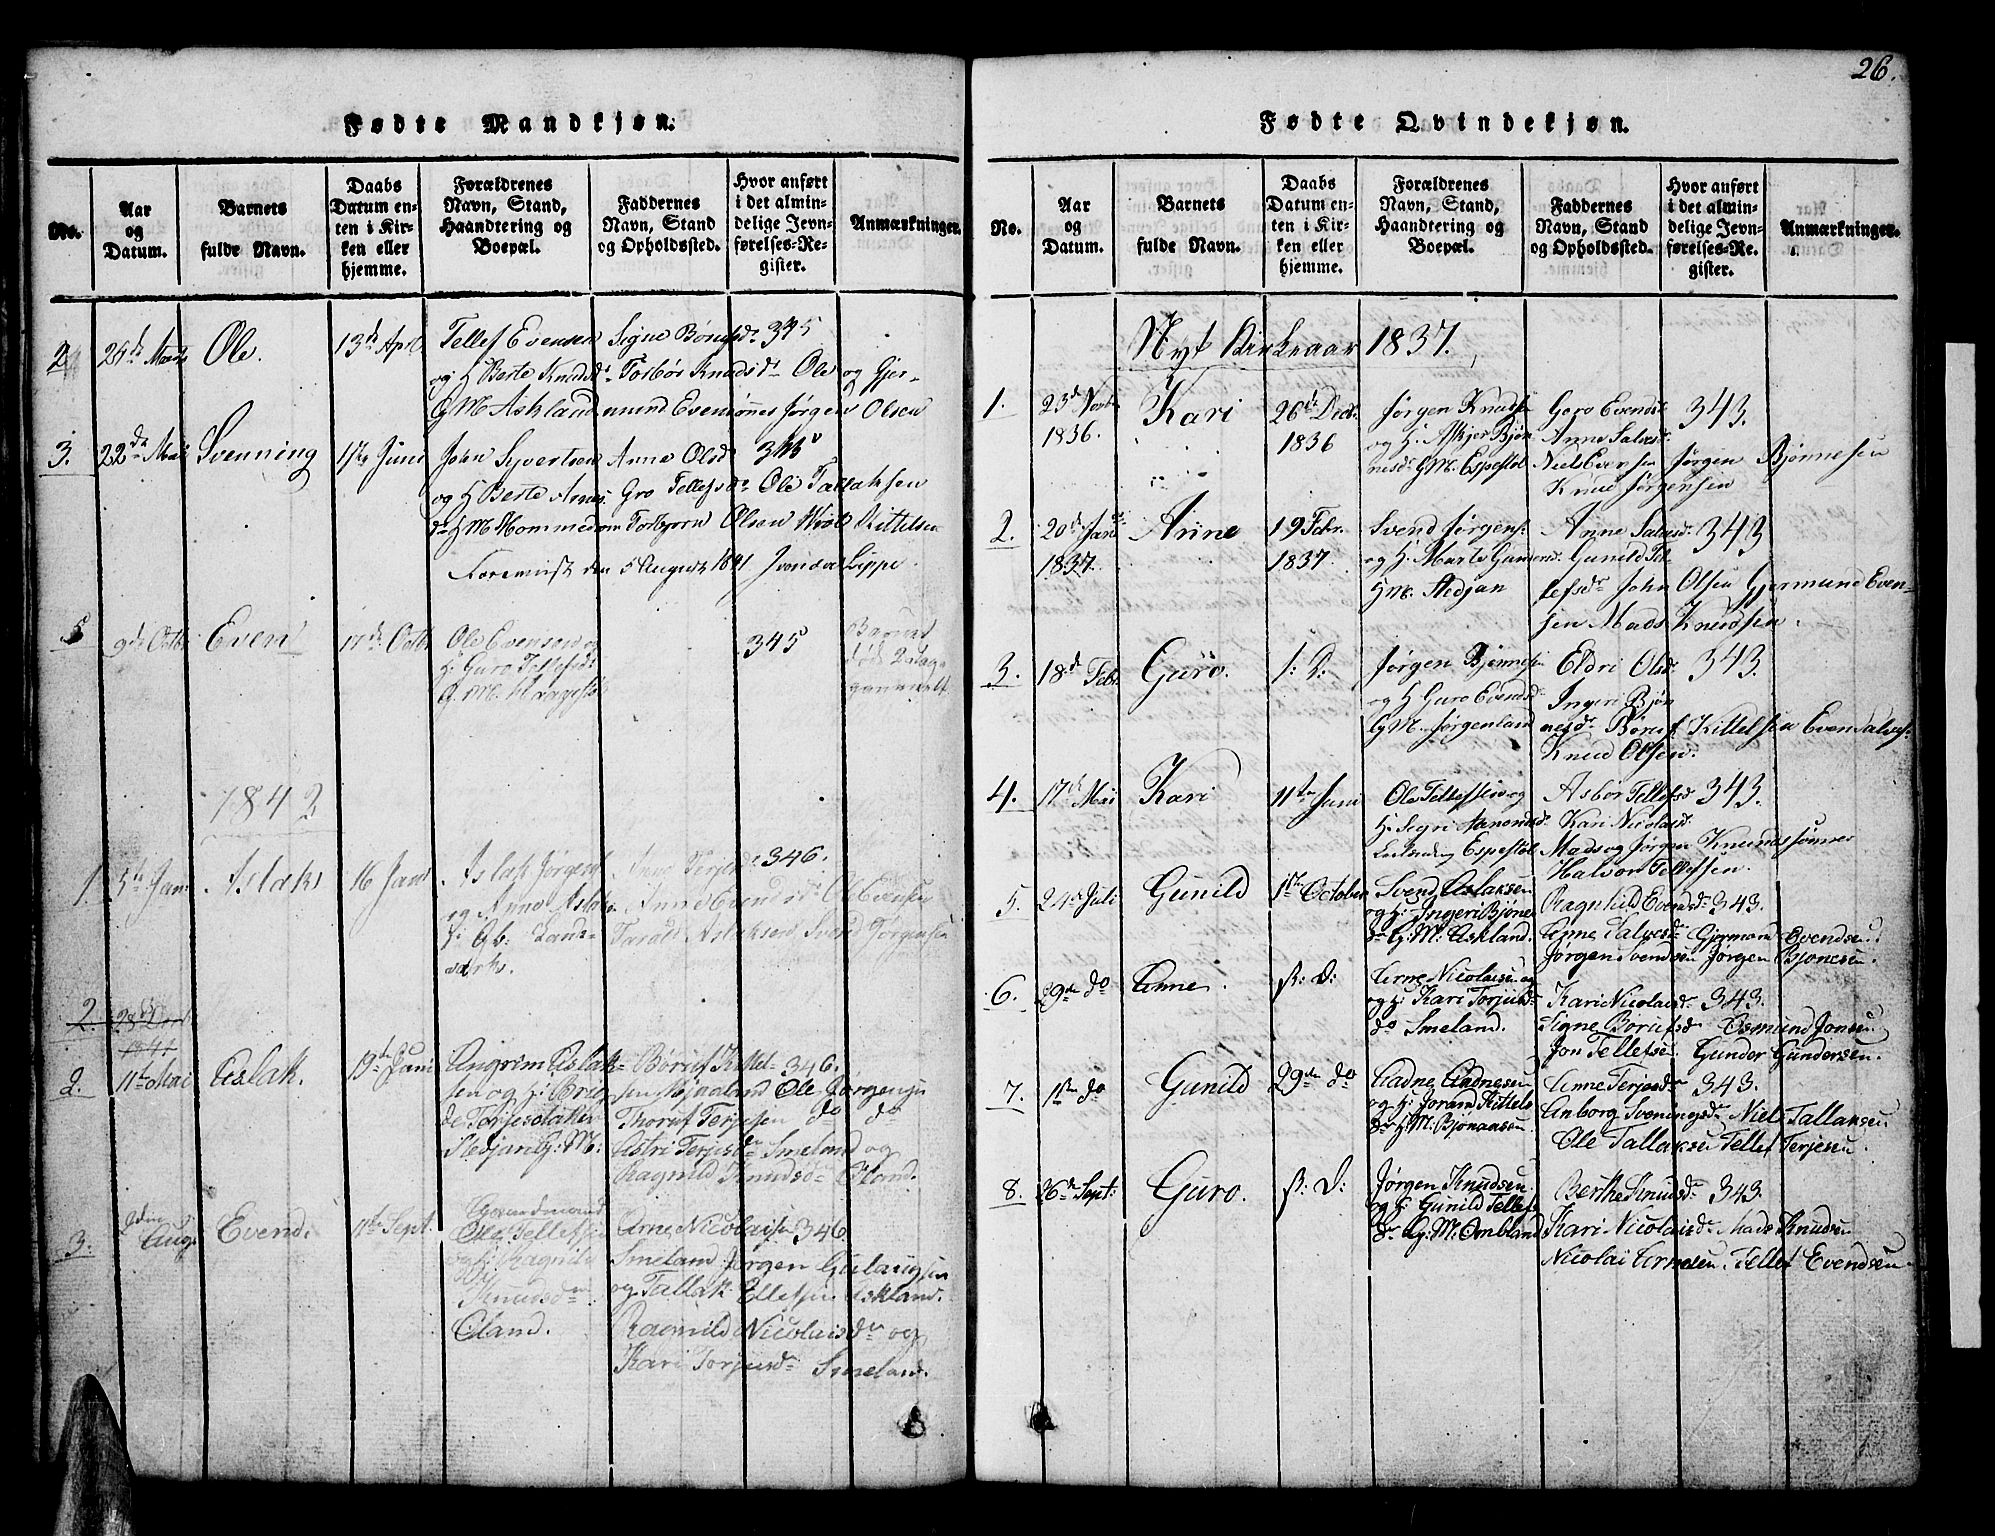 26.
Fødte Mandkjøn.
No.
Aar
og
Datum.
Barnets
fulde Navn.
Daabs
Datum en-
ten i Kir-
ken eller
hjemme.
Forældrenes
Navn, Stand,
Haandtering og
Boepæl.
Faddernes
Navn, Stand
og Opholdssted.
Hvor anført
i det almin-
delige Jevn-
førelses-Re-
gister.
Anmærkninger.
2
Ole.
13de April
Tellef Evensen
og H. Berte Knudsdr
G M Askland
Signe 345
Torbör Knudsdr Ole og Gjer-
mund Evensønner Jørgen Olsen
3.
22de Mai
Svenning
17de Juni
John Syvertsen
og H Berte
dr G M Hommedom
Anne Olsdr
Gro Tellefsdr Ole Tallaksen
Torbjørn Olsen Kittelsen
den 5 August 1841
5
9de Octbr
Even
17de Octbr
Ole Evensen og
H: Guro Tellefsdr
G. M.
345
Barnet
død 2 Dage
gammelt
1842
1
5te Janr
Aslak
16 Janr
Aslak Jørgens
og Anne Aslaks
Gb:
Anne Terjesdr 346.
Anne Evendsdr Ole Evensen
Tarald Aslaksen Svend Jørgensen
2
2.
11te Mai
Aslak.
19de Juni
Angrim Aslak-
sen og H:
G: M:
Børuf Kittel- 346.
sen Mjaaland Ole Jørgensen
Thoruf Terjesen do do
Astri Terjesdr Smeland og
Ragnild Knudsdr Øland.
3.
Aug.
Evend.
11te Sept.
Gaardmand
Ole Tellefsen
og H: Ragnild
Knudsdr
Øland.
Arne Nicolaisen 346
Smeland Jørgen
og Tallak Ellefsen Askland.
Ragnild Nicolaisdr og
Kari Torjusdr Smeland.
Fødte Qvindekjøn.
No.
Aar
og
Datum.
Barnets
fulde Navn.
Daabs
Datum en-
ten i Kir-
ken eller
hjemme.
Forældrenes
Navn, Stand,
Haandtering og
Boepæl.
Faddernes
Navn, Stand
og Opholdssted.
Hvor anført
i det almin-
delige Jevn-
førelses-Re-
gister.
Anmærkninger.
Nyt Kirkeaar 1837.
1.
23de Novbr
1836.
Kari
26de Decbr
1836
Jørgen Knudsen
og H. Askjer Bjøn-
nesdr G M. Espestøl
Goro Evendsdr 343.
Anne Salvesdr
Niels Evensen Jørgen Bjønnesen
Knud Jørgensen
2.
20de Janr
1837.
Anne
19 Febr.
1837.
Svend Jørgens:
og H. Marte Gunders
G M. Stedjan
Anne Salvesdr 343
Gunild Tel-
lefsdr John Olsen Gjermund Even-
sen Mads Knudsen.
3.
18de Febr
Guro.
S: D:
Jørgen Bjønnesen
og H Guro Evendsdr
G M. Jørgenland
Eldri Olsdr 343.
Ingeri Bjøn
nesdr Børuf Kittelsen Even Salves:
Knud Olsen.
4.
17de Mai
Kari
11te Juni
Ole Tellefsen og
H. Segri Aanonsdr
Espestøl
Asbør Tellefsdr 343.
Kari Nicolaisdr
Mads og Jørgen Knudssønner
Halvor Tellefsen.
5.
24de Juli
Gunild
1ste October
Svend Aslaksen
og H: Ingeri Bjøne
dr G: M: Askland.
Ragnhild Evendsdr 343.
Anne Salvesdr Gjermond Evendsen.
Jørgen Svendsen Jørgen Bjønesen.
6.
29de do
Anne.
S: D:
Arne Nicolaisen og
og H: Kari Torjus
dr Smeland.
Kari Nicolaisdr 343.
Signe Børufsdr Osmund Jonsen
Jon Tellefsen. Gunder Gundersen.
7.
1ste do
Gunild
29de do
Aadne Aadnesen
og H: Joram Kittels
dr G: M: Bjonaasen
Anne Terjesdr 343.
Anborg Sveningsdr Niels Tallaksen
Ole Tallaksen Tellef Terjesen.
8.
26de Sept:
Guro.
S: D:
Jørgen Knudsen
og H: Gunild Tellefs
dr G: M: Ombland
Berthe Knudsdr 343.
Kari Nicolaisdr Mads Knudsen
Nicolai Arnesen. Tellef Evendsen.